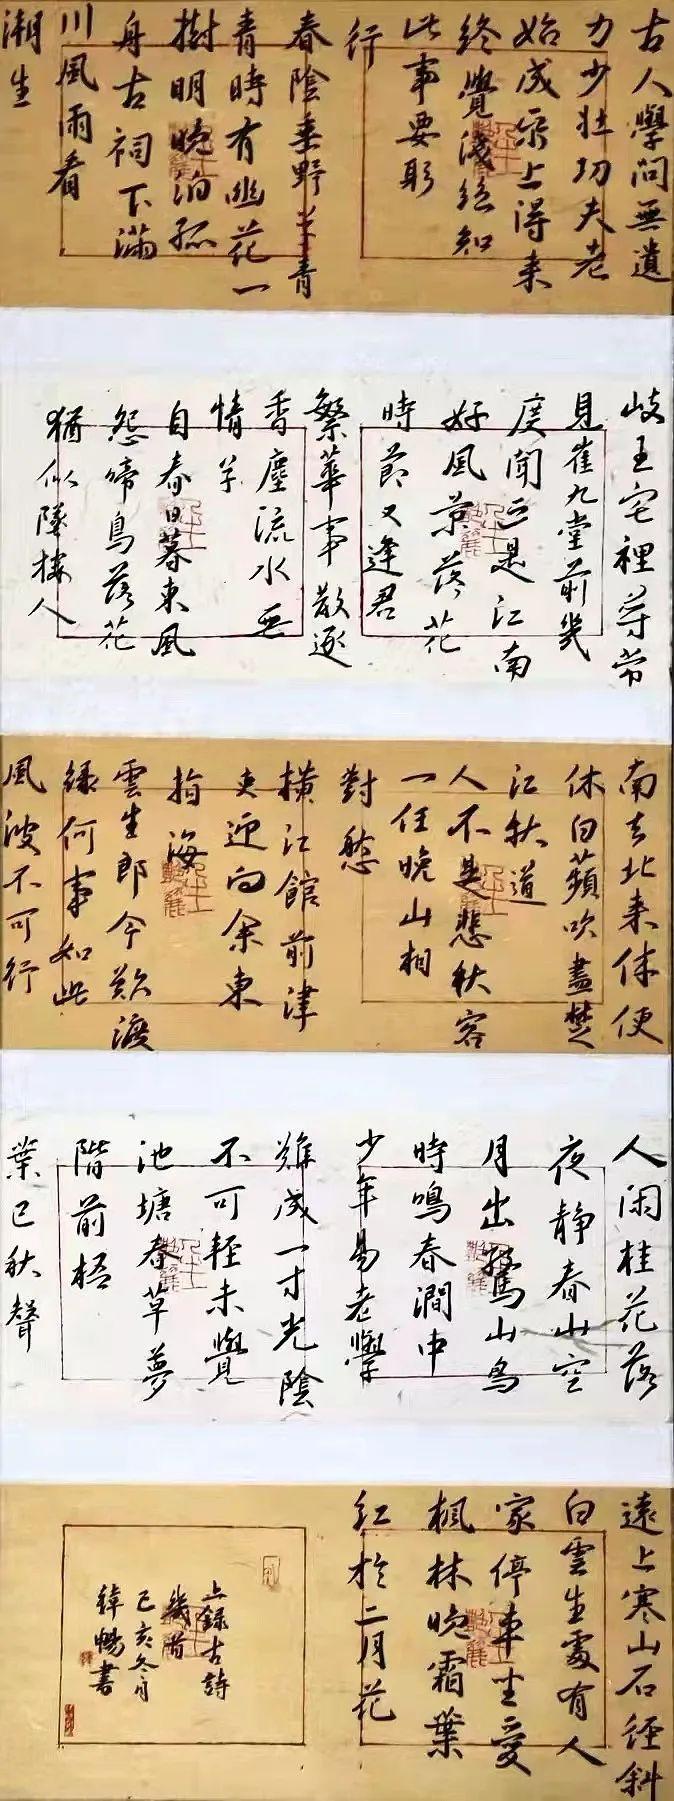 古人學問無遺
力少壯功夫老
始成帋上得来
終覺淺絕知
此事要躬
行
春陰垂野草青
青時有幽花一
樹明晚泊孤
舟古祠下滿
川風雨看
潮生
岐王宅裡尋常
見崔九堂前幾
度聞正是江南
好風景落花
時節又逢君
繁華事散逐
香塵流水無
情草
自春日暮東風
怨啼鳥落花
猶似墜樓人
南去北来休便
休白蘋吹盡楚
江秋道
人不是悲秋客
一任晚山相
對愁
橫江館前津
吏迎向余東
指海
雲生郎今欲渡
緣何事如此
風波不可行
人闲桂花落
夜靜春山空
月出驚山鳥
時鳴春澗中
少年易老學
難成一寸光陰
不可輕未覺
池塘春草夢
階前梧
葉已秋聲
遠上寒山石徑斜
白雲生處有人
家停車坐愛
楓林晚霜葉
紅於二月花
上錄古詩
幾首
己亥冬月
暢書